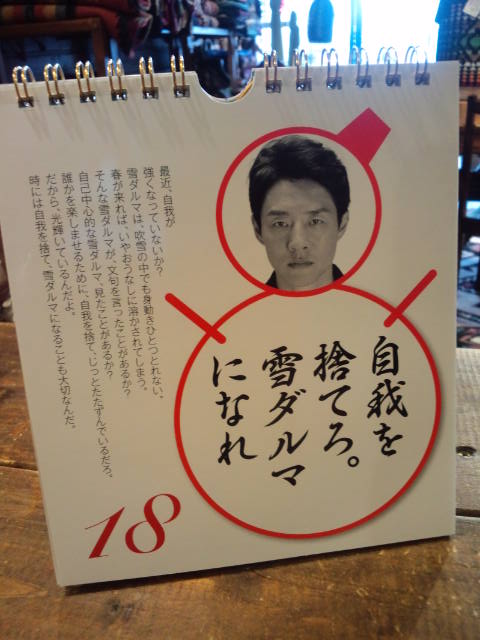 自我を
捨てろ。
雪ダルマ
になれ
最近、自我が
強くなっていないか?
雪ダルマは、吹雪の中でも身動きひとつとれない、
春が来れば、いやおうなしに溶かされてしまう。
そんな雪ダルマが、文句を言ったことがあるか?
自己中心的な雪ダルマ、見たことがあるか?
誰かを楽しませるために、自我を捨て、じっとたたずんでいるだろ。
だから、光輝いているんだよ。
時には自我を捨て、雪ダルマになることも大切なんだ。
18